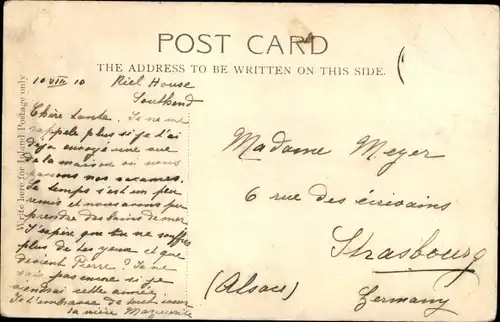 POST CARD
THE ADDRESS TO BE WRITTEN ON THIS SIDE.
Write here for Inland Postage only
10 VIII 10 Riel House
Southend
Chère tante. Je ne me
rappelle plus si je t'ai
déjà envoyé une vue
de la maison où nous
passons nos vacances.
Le temps s'est un peu
remis et nous avons pu
prendre des bains de mer
J'espère que tu ne souffres
plus de tes yeux et que
devient Pierre? Je ne
sais pas encore si je
viendrai cette année
Je t'embrasse de tout cœur
ta nièce Marguerite
Madame Meyer
6 rue des écrivains
Strasbourg
(Alsace)
Germany